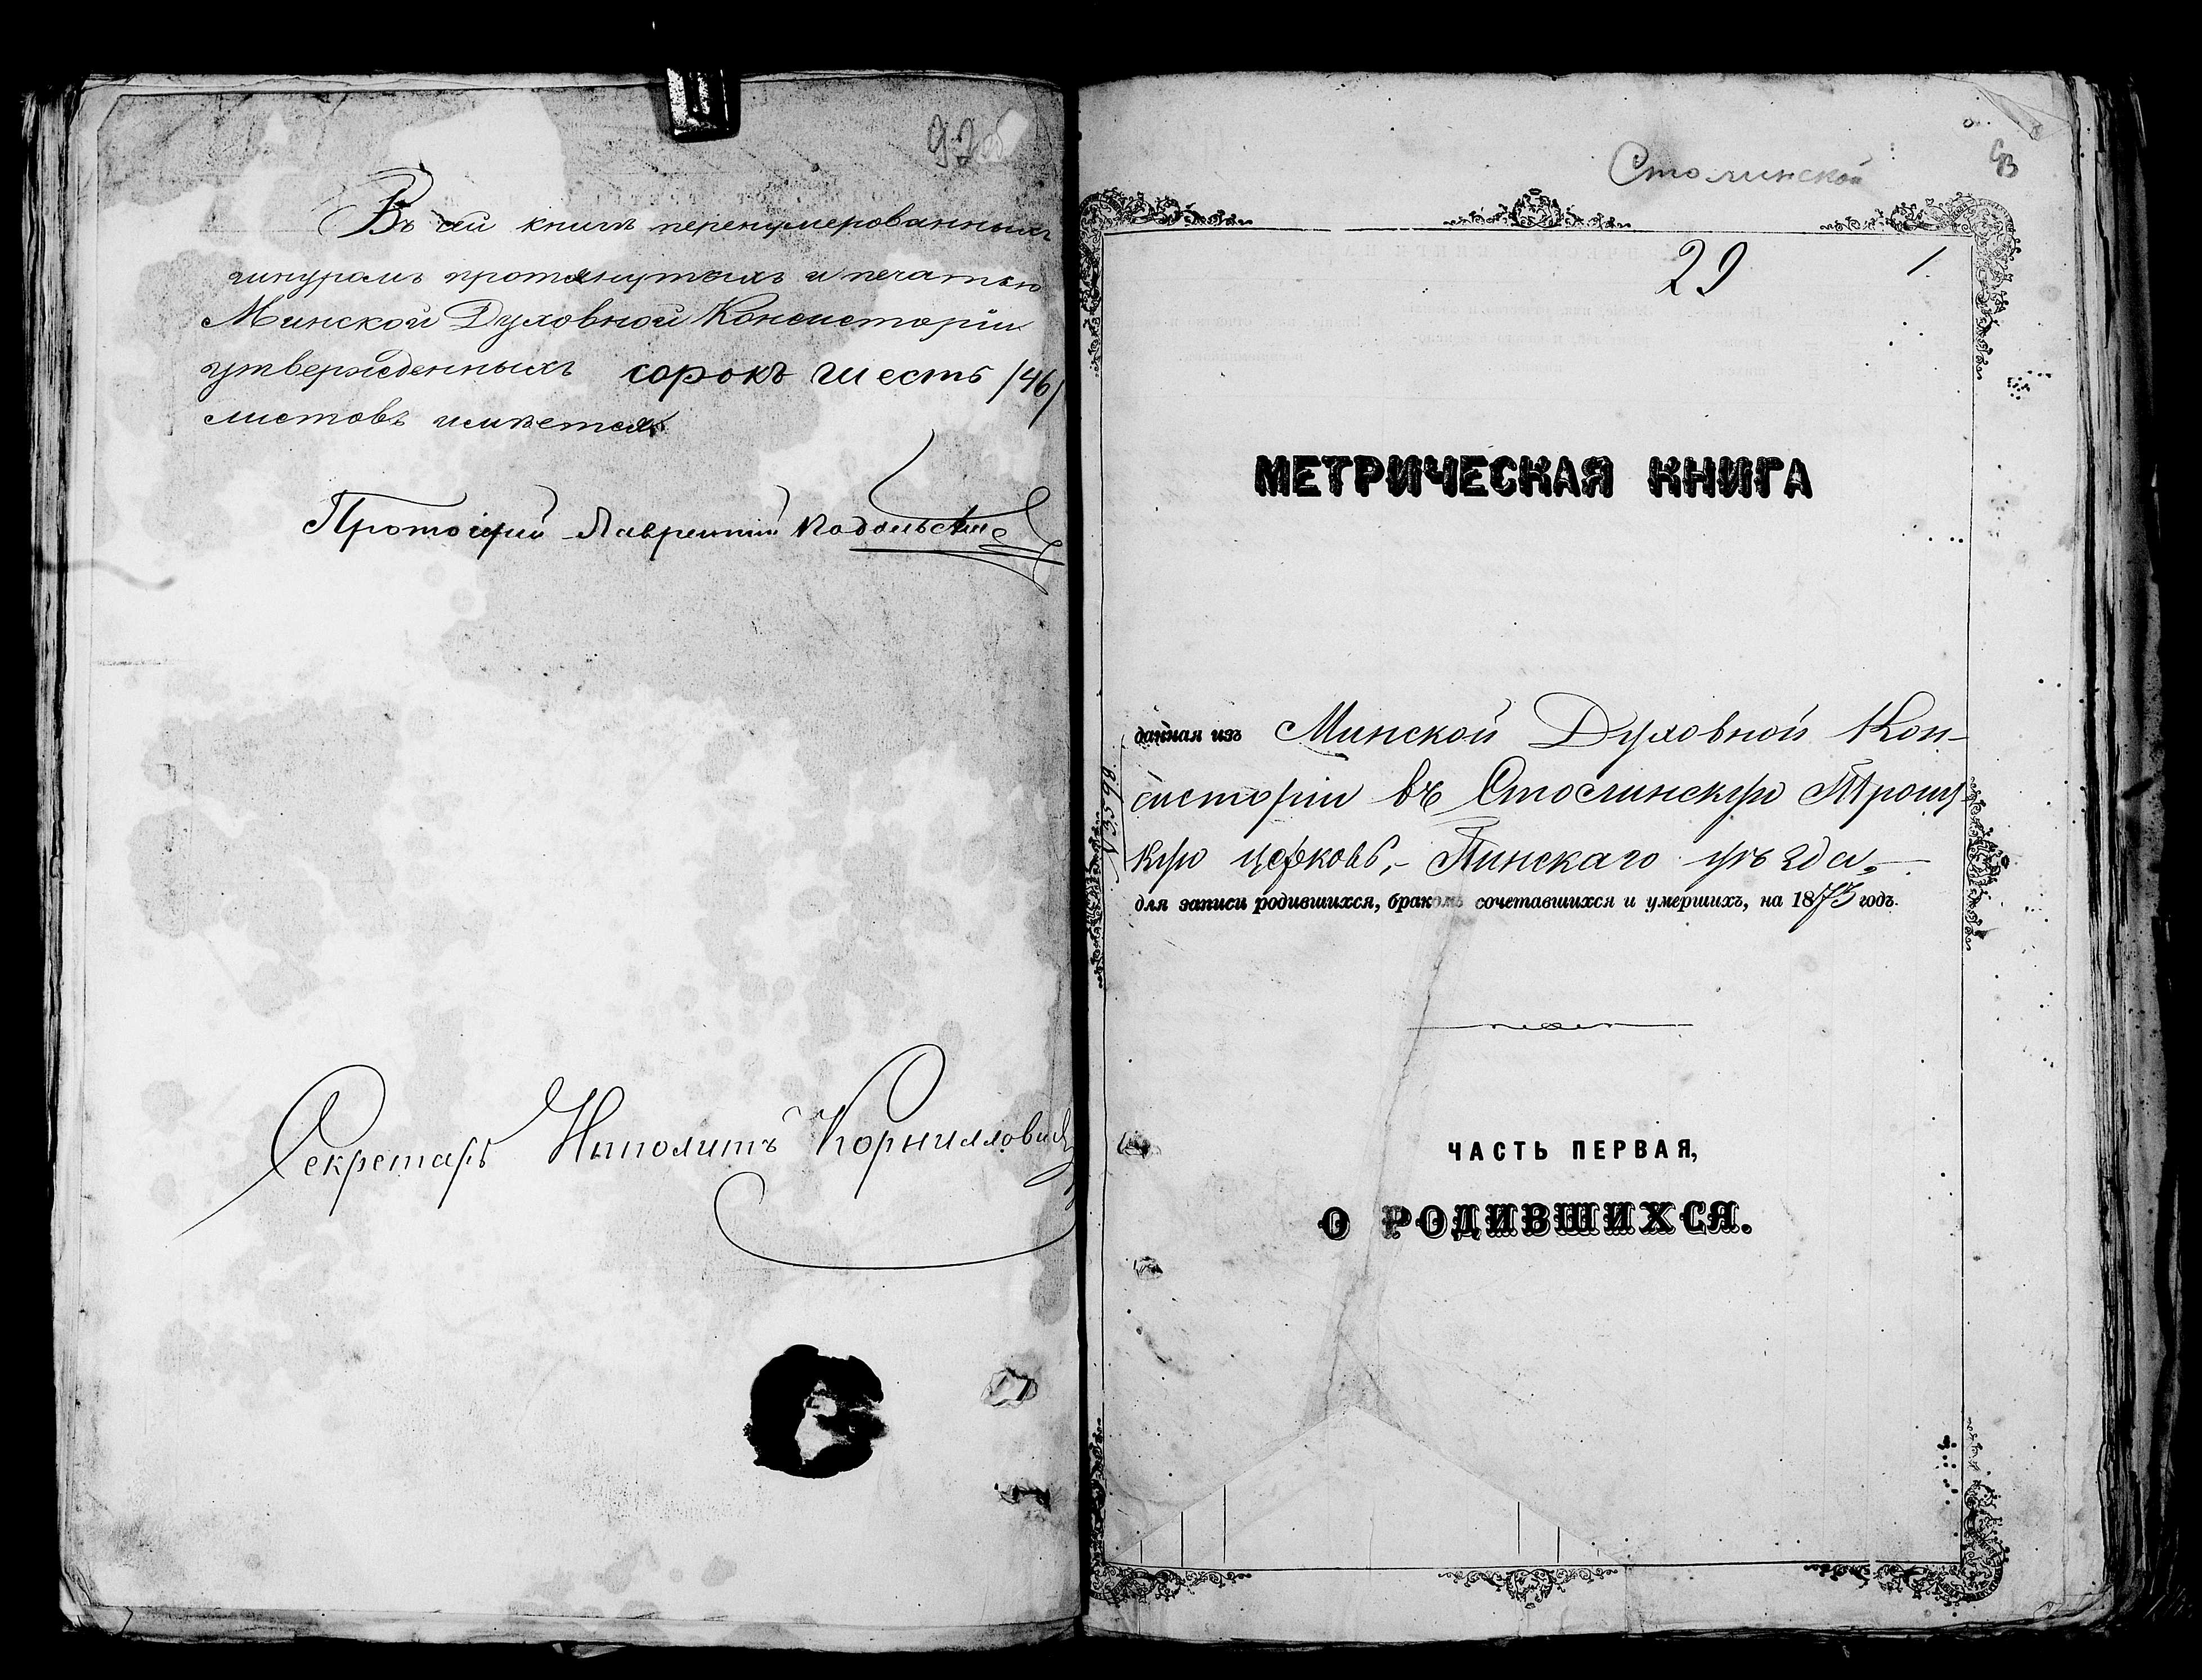 92об
Въ сей книгѣ перенумерованныхъ
шнуромъ протянутыхъ и печатью
Минской Духовной Консисторіи
утвержденныхъ сорокъ шесть /46/
листовъ имѣется
Протоіерей Лаврентій Подольскій
Секретарь Ипполитъ Корниллович
Столинской
93
29
1.
МЕТРИЧЕСКАЯ КНИГА
данная изъ Минской Духовной Кон-
систоріи въ Столинскую Троиц
кую церковь, Пинскаго уѣзда,
для записи родившихся, бракомъ сочетавшихся и умершихъ, на 1873 годъ.
№ 3598
ЧАСТЬ ПЕРВАЯ,
О РОДИВШИХСЯ.